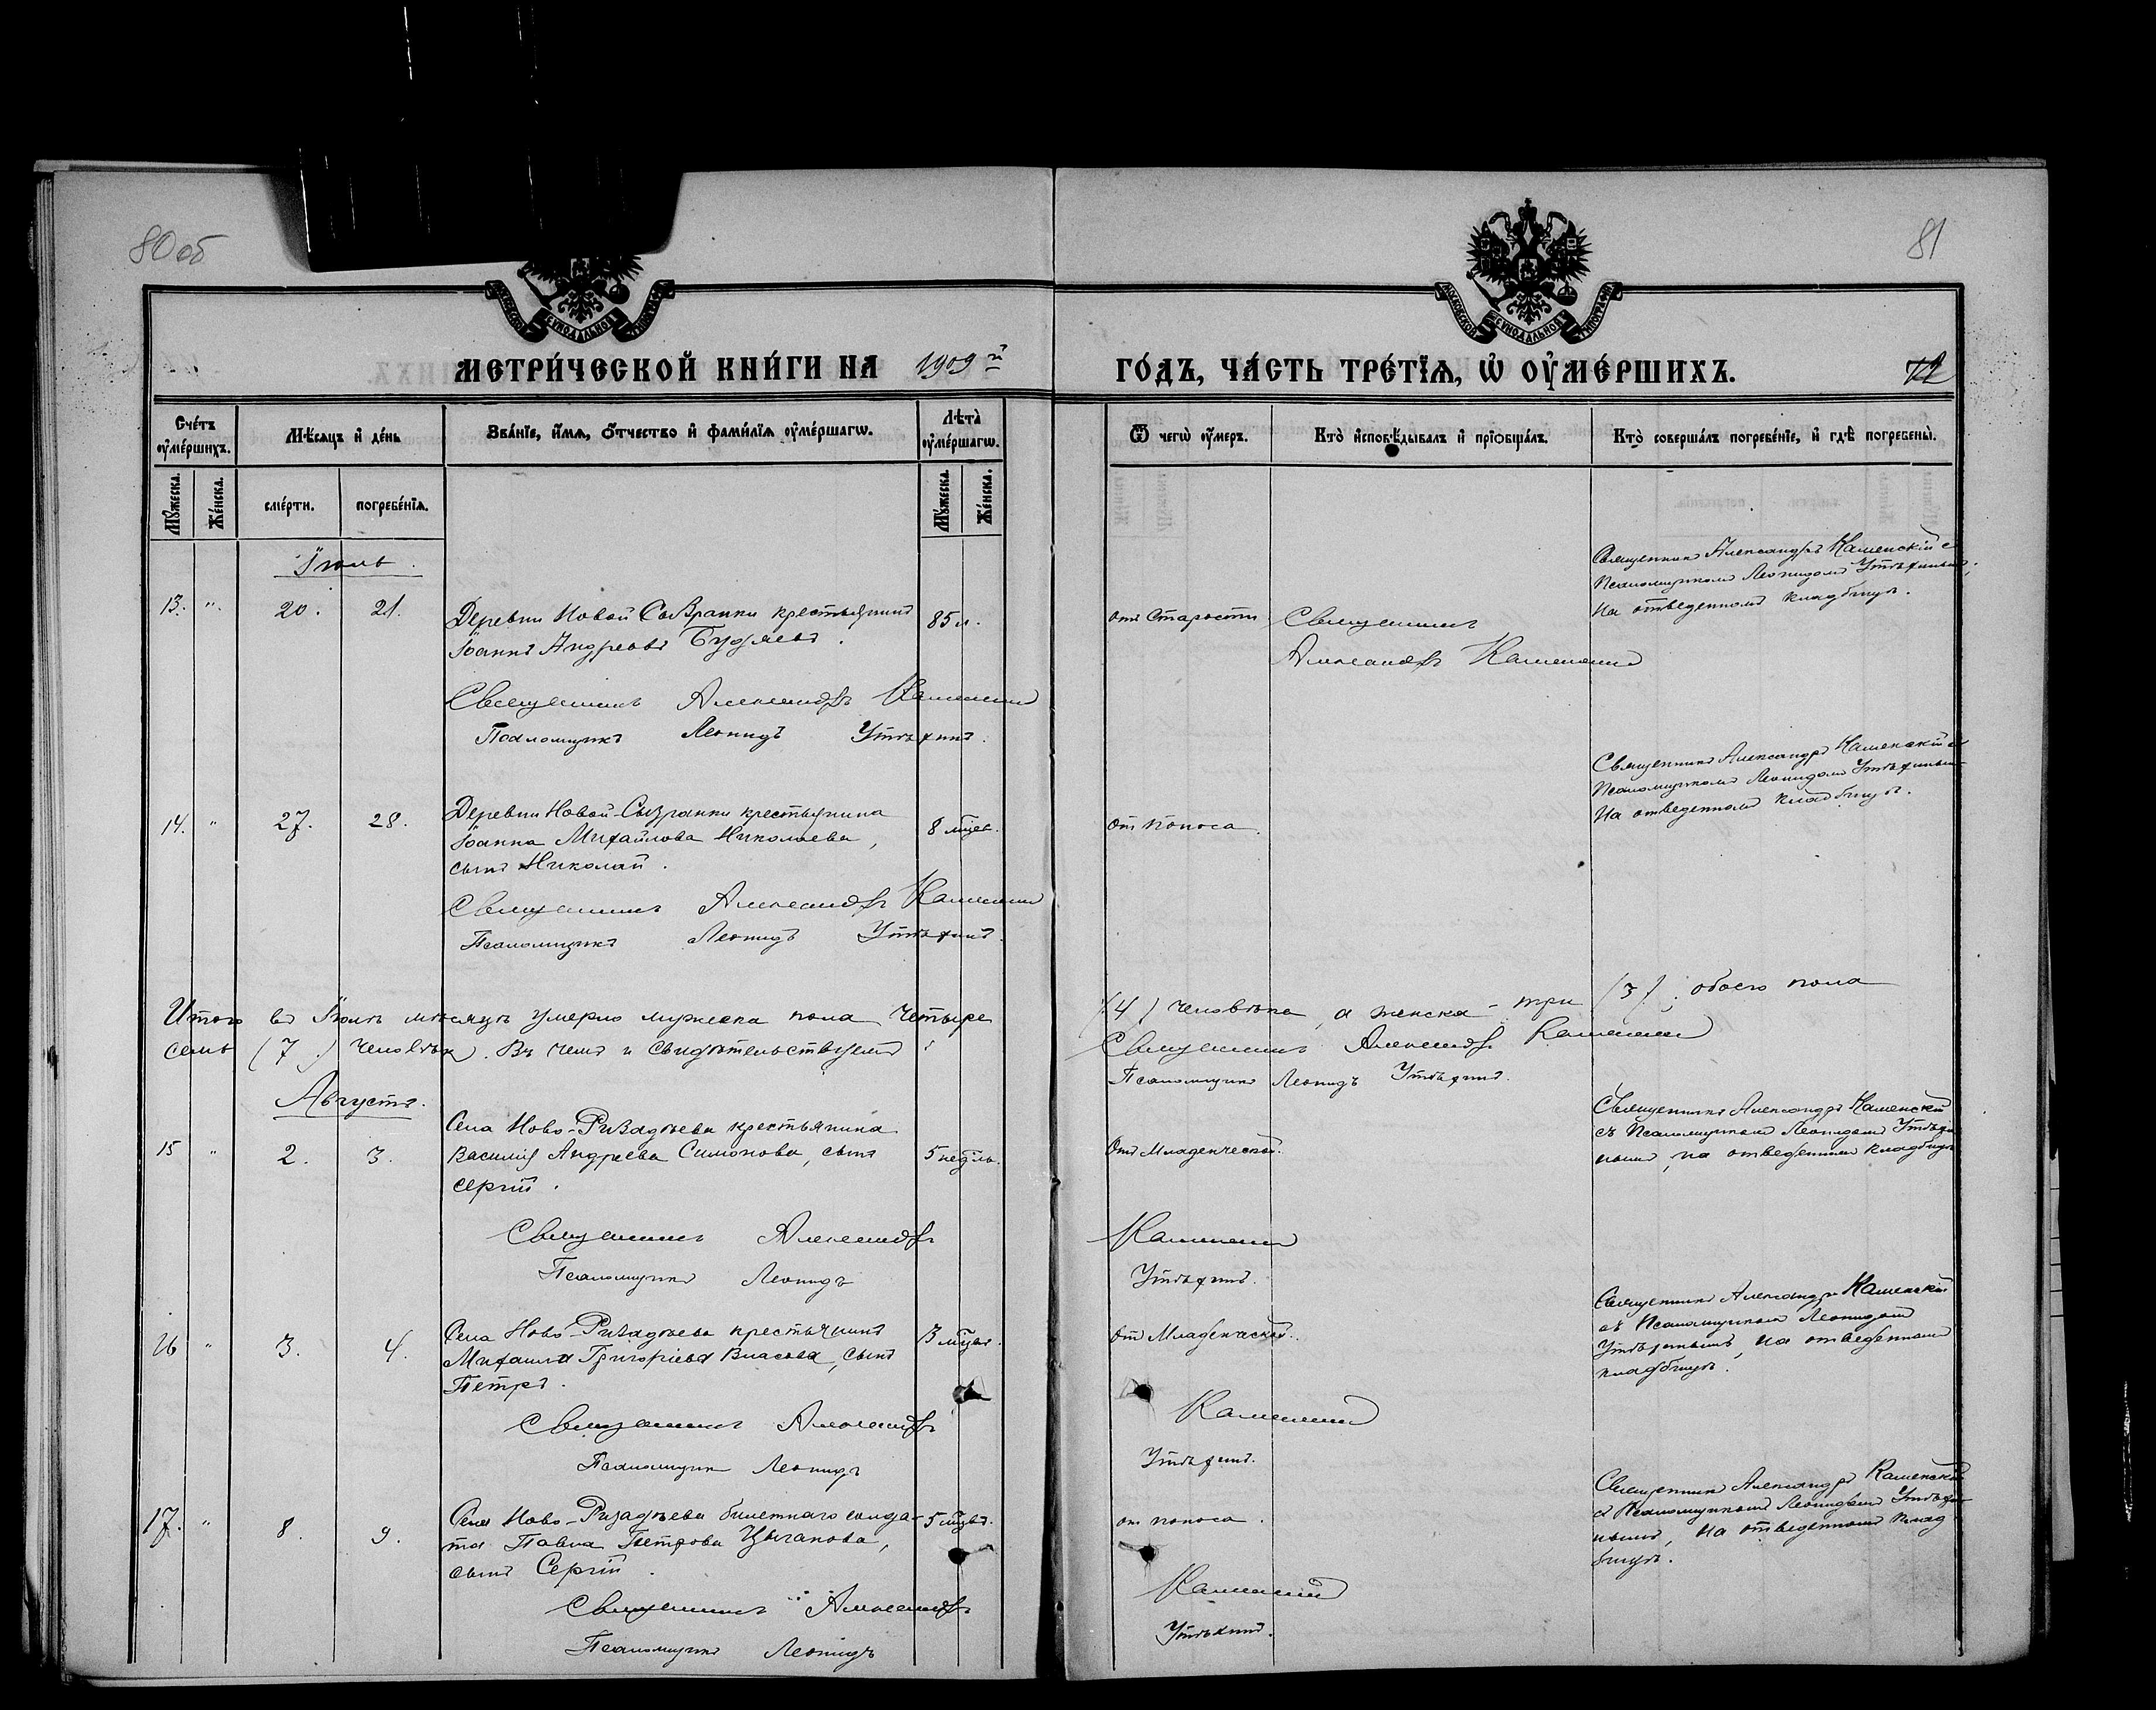 80 об
81
МЕТРИ́ЧЕСКОЙ КНИ́ГИ НА 1909й ГО́ДЪ, ЧА́СТЬ ТРЕ́ТІѦ, Ѡ҆ ОУ҆МЕ́РШИХЪ.
Сче́тъ оу҆ме́ршихъ.
Мѣ́сяцъ и҆ де́нь
Зва́нїе, и҆́мѧ, о҆́тчество и҆ фами́лїѧ оу҆ме́ршагѡ.
Лѣ́та оу҆ме́ршагѡ.
Ѿ чегѡ̀ оу҆́меръ.
Кто̀ и҆сповѣ́дывалъ и҆ прїѡбща́лъ.
Кто̀ соверша́лъ погребе́нїе, и҆ гдѣ̀ погребены̀.
Мꙋ́жеска.
Же́нска.
сме́рти.
погребе́нїѧ.
Мꙋ́жеска.
Же́нска.
Іюль.
13. " 20. 21.
Деревни Новой Сызранки крестьянинъ
Іоаннъ Андреевъ
85 л.
отъ старости
Священникъ
Александръ Каменскій
Священникъ Александръ Каменскій с
Псаломщикомъ Леонидомъ Утѣхинымъ,
На отведенномъ кладбищѣ.
Священникъ Александръ Каменскій
Псаломщикъ Леонидъ Утѣхинъ.
14. " 27. 28.
Деревни Новой-Сызранки крестьянина
Іоанна Михайлова Николаева,
сынъ Николай.
8 мѣцев.
От поноса.
Священникъ Александръ Каменскій с
Псаломщикомъ Леонидомъ Утѣхинымъ
На отведенномъ кладбищѣ.
Священникъ Александръ Каменскій
Псаломщикъ Леонидъ Утѣхинъ.
Итого въ Іюлѣ мѣсяцѣ умерло мужеска пола четыре (4) человѣка, а женска - три (3); обоего пола
семь (7) человѣкъ. Въ чемъ и свидѣтельствуемъ: Священникъ Александръ Каменскій
Псаломщикъ Леонидъ Утѣхинъ.
Августъ.
15 " 2. 3.
Села Ново-Ризадѣева крестьянина
Василія Андреева Симонова, сынъ
Сергій.
5 недѣль.
Отъ Младенческой.
Священникъ Александръ Каменскій
съ Псаломщикомъ Леонидомъ Утѣхи
нымъ, на отведенномъ кладбищѣ
Священникъ Александръ Каменскій
Псаломщикъ Леонидъ Утѣхинъ.
16 " 3. 4.
Села Ново-Ризадѣева крестьянинъ
Михаила Григоріева Власова, сынъ
Петръ.
3 мѣцев.
От Младенческой.
Священникъ Александръ Каменскій
съ Псаломщикомъ Леонидомъ
Утѣхинымъ, на отведенномъ
кладбищѣ.
Священникъ Александръ Каменскій
Псаломщикъ Леонидъ Утѣхинъ.
17. " 8. 9.
Села Ново-Ризадѣева билетнаго солда-
та Павла Петрова Цыганова,
сынъ Сергій.
5 мѣцев.
от поноса.
Священникъ Александръ Каменскій
с Псаломщикомъ Леонидомъ Утѣхи
нымъ, на отведенномъ клад
бищѣ.
Священникъ Александръ Каменскій
Псаломщикъ Леонидъ Утѣхинъ.